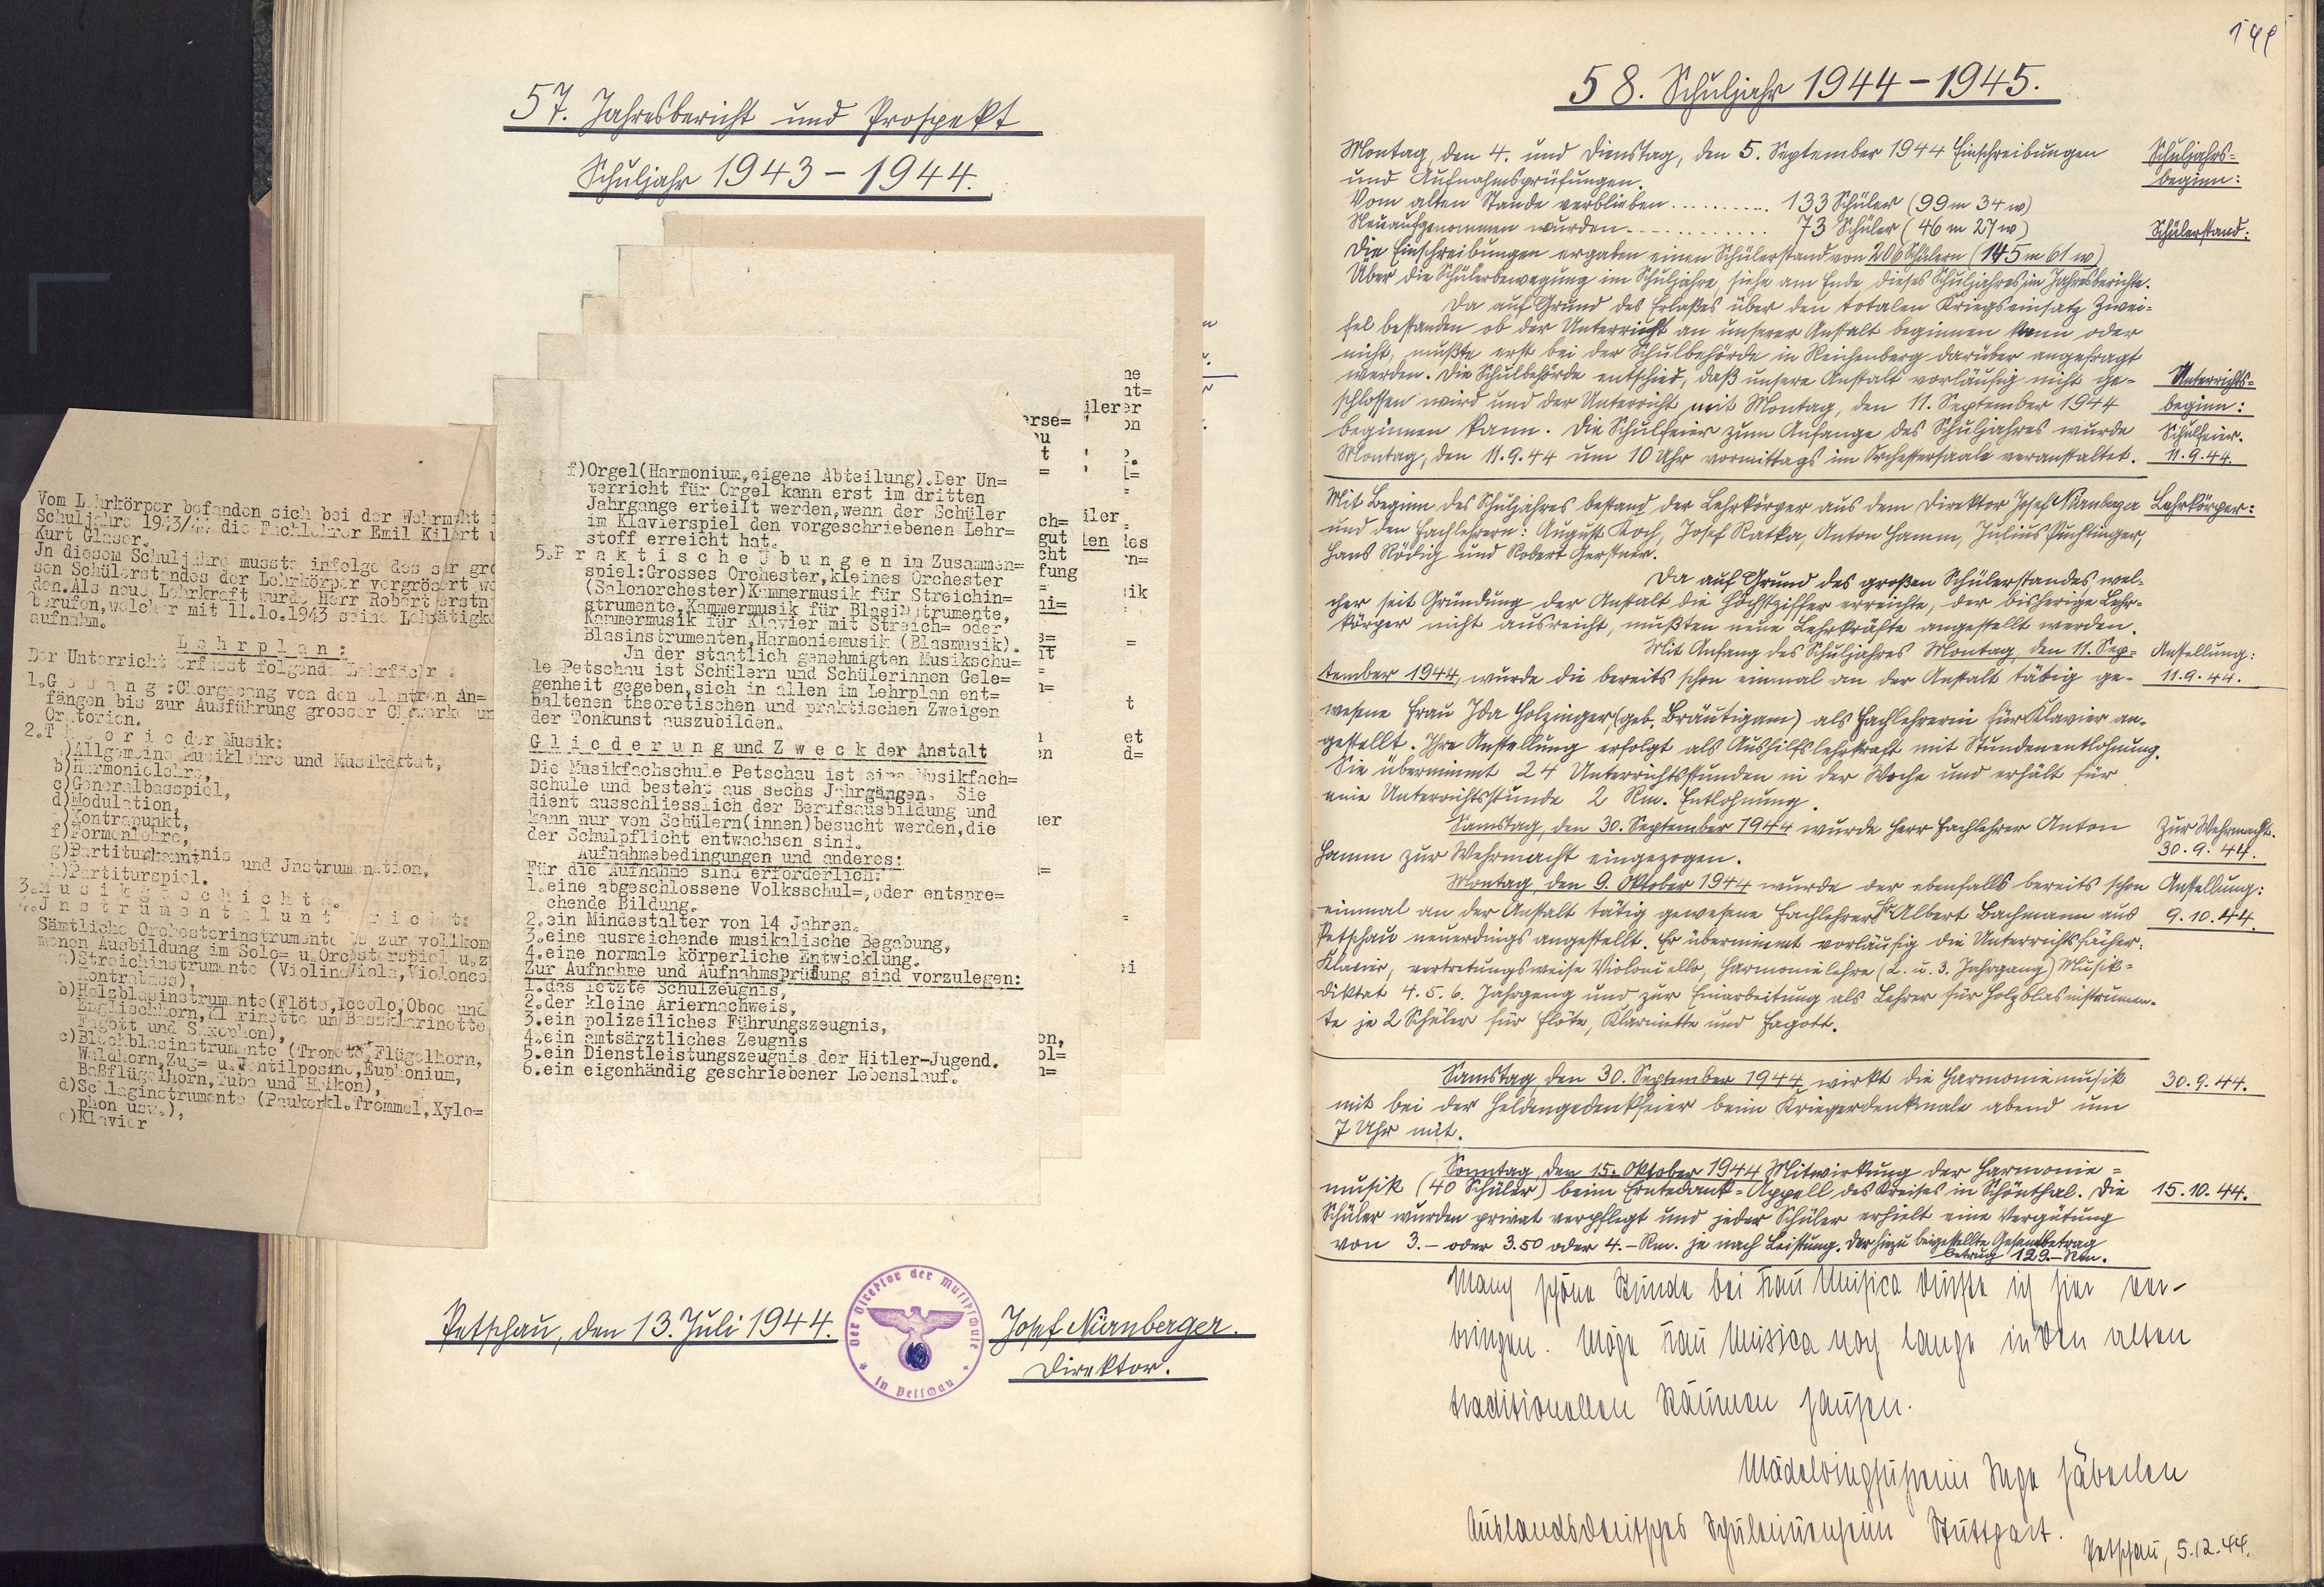 57. Jahresbericht und Prospekt
Schuljahr 1943 - 1944.
Vom Lehrkörper befanden sich bei der Wehrmacht i
Schuljahre 1943/44 die Fachlehrer Emil Kilert u
Kurt Glaser.
Jn diesem Schuljahre musste infolge des ser gro
sen Schülerstandes der Lehrkörper vergrösert we
den. Als neue Lehrkraft wurde Herr Robert erstn
berufen, welcher mit 11.10.1943 seine Lehrätigke
aufnahm.
L e h r p l a n :
Der Unterricht erfasst folgende Lehrfächer :
1. G e s a n g : Chorgesang von den elentren An=
fängen bis zur Ausführung grosser Chorwerke un
Oratorien.
2. T h e o r i e der Musik:
a) Allgemeine Musiklehre und Musikdktat,
b) Harmonielehre,
c) Generalbasspiel,
d) Modulation,
e) Kontrapunkt,
f) Formenlehre,
g) Partiturkenntnis und Jnstrumentation,
h) Partiturspiel.
3. M u s i k g e s c h i c h t e.
4. J n s t r u m e n t a l u n t e r r i c h t:
Sämtliche Orchesterinstrumente bis zur vollkom
menen Ausbildung im Solo= u. Orchsterspiel u.z
a) Streichinstrumente (Violine Viola, Violonce
Kontrabass),
b) Holzblasinstrumente (Flöte, iccolo, Oboe und
Englischhorn, Klarinette un Bassklarinette
Fagott und Saxophon),
c) Blechblasinstrumente (Tromete, Flügelhorn,
Waldhorn, Zug= u. Ventilposine, Euphonium,
Baßflügelhorn, Tuba und Helikon),
d) Schlaginstrumente (Pauken kl. Trommel, Xylo=
phon usw.),
e) Klavier
f) Orgel (Harmonium, eigene Abteilung). Der Un=
terricht für Orgel kann erst im dritten
Jahrgange erteilt werden, wenn der Schüler
im Klavierspiel den vorgeschriebenen Lehr=
stoff erreicht hat.
5. P r a k t i s c h e Ü b u n g e n im Zusammen=
spiel: Grosses Orchester, kleines Orchester
(Salonorchester) Kammermusik für Streichin=
strumente, Kammermusik für Blasinstrumente,
Kammermusik für Klavier mit Streich= oder
Blasinstrumenten, Harmoniemusik (Blasmusik).
Jn der staatlich genehmigten Musikschu=
le Petschau ist Schülern und Schülerinnen Gele=
genheit gegeben, sich in allen im Lehrplan ent=
haltenen theoretischen und praktischen Zweigen
der Tonkunst auszubilden.
G l i e d e r u n g und Z w e c k der Anstalt
Die Musikfachschule Petschau ist eine Musikfach=
schule und besteht aus sechs Jahrgängen. Sie
dient ausschliesslich der Berufsausbildung und
kann nur von Schülern(innen) besucht werden, die
der Schulpflicht entwachsen sind.
Aufnahmebedingungen und anderes:
Für die Aufnahme sind erforderlich:
1. eine abgeschlossene Volksschul=, oder entspre=
chende Bildung.
2. ein Mindestalter von 14 Jahren.
3. eine ausreichende musikalische Begabung,
4. eine normale körperliche Entwicklung.
Zur Aufnahme und Aufnahmsprüfung sind vorzulegen:
1. das letzte Schulzeugnis,
2. der kleine Ariernachweis,
3. ein polizeiliches Führungszeugnis,
4. ein amtsärztliches Zeugnis
5. ein Dienstleistungszeugnis der Hitler-Jugend.
6. ein eigenhändig geschriebener Lebenslauf.
Petschau, den 13. Juli 1944.
Der Direktor der Musikschule
in Petschau
Josef Nürnberger.
Direktor.
58. Schuljahr 1944 - 1945.
Montag, den 4. und Dienstag, den 5. September 1944 Einschreibungen
und Aufnahmsprüfungen.
Schuljahrs=
beginn:
Vom alten Stande verblieben .......... 133 Schüler (99 m 34 w)
Neuaufgenommen wurden ............. 73 Schüler (46 m 27 w)
Schülerstand:
Die Einschreibungen ergaben einen Schülerstand von 206 Schülern (145 m 61 w)
Über die Schülerbewegung im Schuljahre, siehe am Ende dieses Schuljahres im Jahresberichte.
Da auf Grund des Erlaßes über den totalen Kriegseinsatz Zwei=
fel bestanden ob der Unterricht an unserer Anstalt beginnen kann oder
nicht, mußte erst bei der Schulbehörde in Reichenberg darüber angefragt
werden. Die Schulbehörde entschied, daß unsere Anstalt vorläufig nicht ge-
schlossen wird und der Unterricht mit Montag, den 11. September 1944
beginnen kann. Die Schulfeier zum Anfange des Schuljahres wurde
Montag, den 11.9.44 um 10 Uhr vormittags im Orchestersaale veranstaltet.
Unterrichts=
beginn:
Schulfeier.
11.9.44.
Mit Beginn des Schuljahres bestand der Lehrkörper aus dem Direktor Josef Nürnberger
und den Fachlehrern: August Koch, Josef Ratka, Anton Hamm, Julius Püchtinger,
Hans Rödig und Robert Gerstner.
Lehrkörper:
Da auf Grund des großen Schülerstandes wel=
cher seit Gründung der Anstalt die Höchstziffer erreichte, der bisherige Lehr=
körper nicht ausreicht, mußten neue Lehrkräfte angestellt werden.
Mit Anfang des Schuljahres Montag, den 11. Sep=
tember 1944, wurde die bereits schon einmal an der Anstalt tätig ge-
wesene Frau Ida Holzinger (geb. Bräutigam) als Fachlehrerin für Klavier an-
gestellt. Ihre Anstellung erfolgt als Aushilfslehrkraft mit Stundenentlohnung.
Sie übernimmt 24 Unterrichtsstunden in der Woche und erhält für
eine Unterrichtsstunde 2 Rm. Entlohnung.
Anstellung:
11.9.44.
Samstag, den 30. September 1944 wurde Herr Fachlehrer Anton
Hamm zur Wehrmacht eingezogen.
Zur Wehrmacht.
30.9.44.
Montag, den 9. Oktober 1944 wurde der ebenfalls bereits schon
einmal an der Anstalt tätig gewesene Fachlehrer Hr. Albert Bachmann aus
Petschau neuerdings angestellt. Er übernimmt vorläufig die Unterrichtsfächer:
Klavier, vertretungsweise Violoncello, Harmonielehre (2. u. 3. Jahrgang) Musik=
diktat 4. 5. 6. Jahrgang und zur Einarbeitung als Lehrer für Holzblasinstrumen-
te je 2 Schüler für Flöte, Klarinette und Fagott.
Anstellung:
9.10.44.
Samstag den 30. September 1944 wirkt die Harmoniemusik
mit bei der Heldengedenkfeier beim Kriegerdenkmale abend um
7 Uhr mit.
30.9.44.
Sonntag, den 15. Oktober 1944 Mitwirkung der Harmonie=
musik (40 Schüler) beim Erntedank=Appell des Kreises in Schönthal. Die
Schüler wurden privat verpflegt und jeder Schüler erhielt eine Vergütung
von 3.- oder 3.50 oder 4.- Rm. je nach Leistung. Der hiezu beigestellte Gesamtbetrag
betrug 129.- Rm.
15.10.44.
Manch schöne Stunde bei Frau Musica durfte ich hier ver-
bringen. Möge Frau Musica noch lange in den alten
traditionellen Räumen hausen.
Mädelringführerin Inge Häberlen
Auslandsdeutsches Schülerinnenheim Stuttgart.
Petschau, 5.12.44.